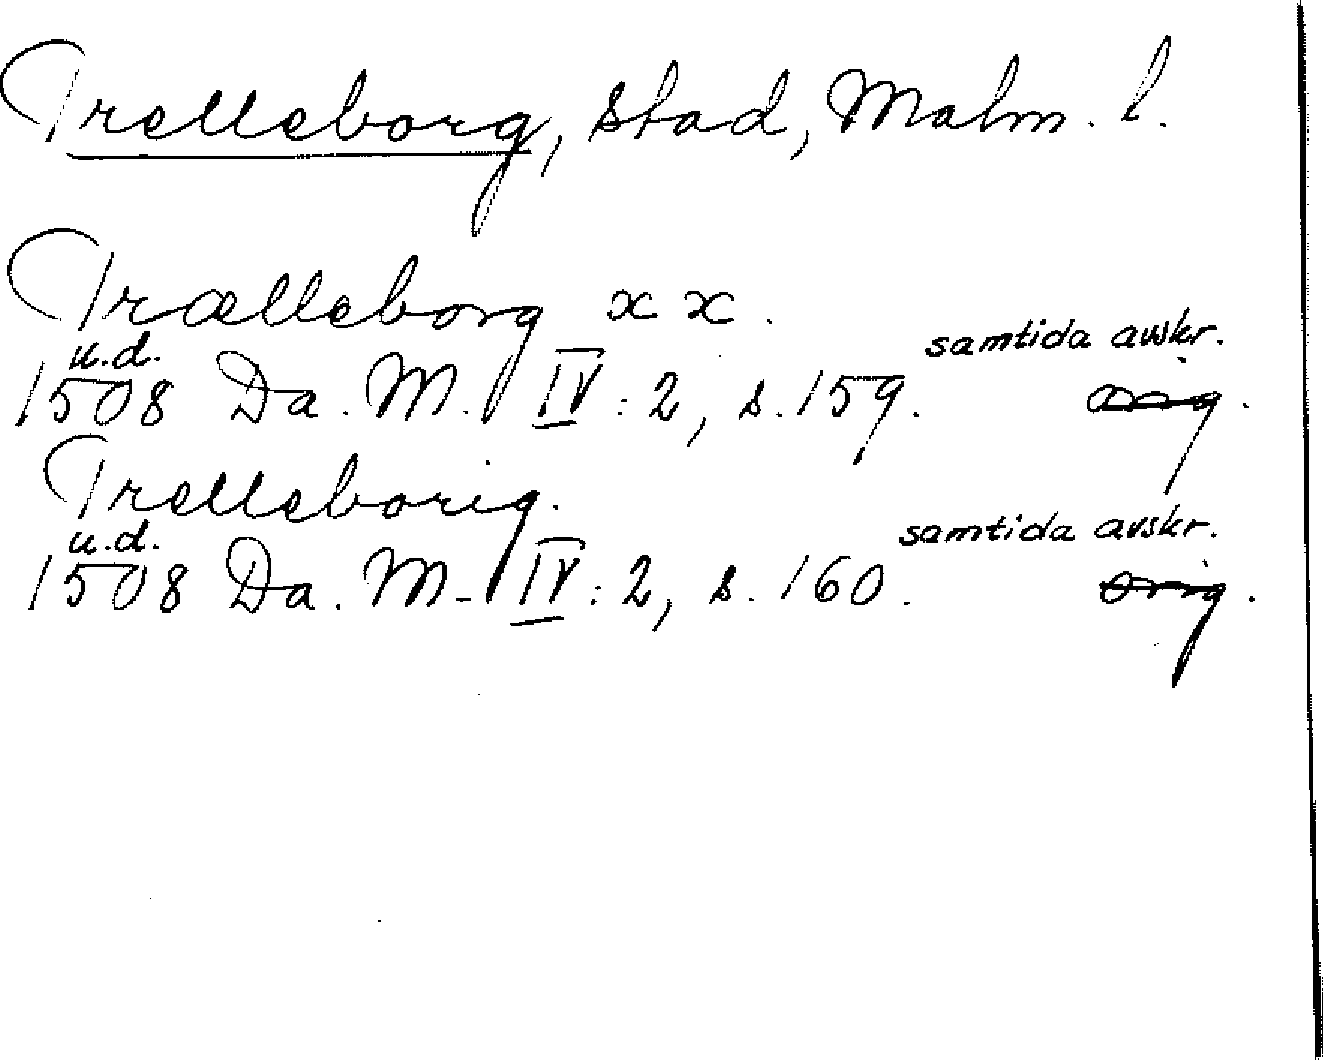 Trelleborg, stad, Malm. l.
Trælleborg x x.
u.d. samtida avskr.
1508 Da. M. IV: 2, s. 159. orig.
Trelleborig.
u.d. samtida avskr.
1508 Da. M. IV: 2, s. 160. orig.